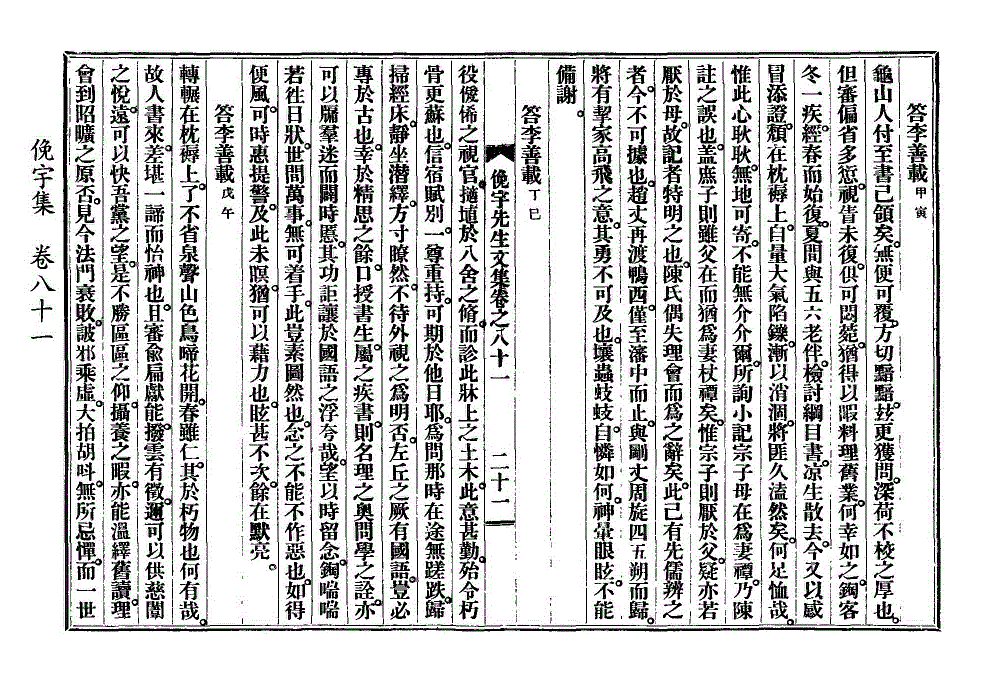 答李善載 甲寅
龜山人付至書已領矣。無便可覆。方切黯黯。玆更獲問。深荷不校之厚也。
但審偏省多愆。視眚未復。供可悶菀。猶得以暇料理舊業。何幸如之。鋾客
冬一疾。經春而始復。夏間與五六老伴。檢討綱目書。凉生散去。今又以感
冒添證。頹在枕褥上。自量大氣陷鑠。漸以消涸。將匪久溘然矣。何足恤哉。
惟此心耿耿。無地可寄。不能無介介爾。所詢小記宗子母在爲妻禫。乃陳
註之誤也。蓋庶子則雖父在而猶爲妻杖禫矣。惟宗子則厭於父。疑亦若
厭於母。故記者特明之也。陳氏偶失理會而爲之辭矣。此已有先儒辨之
者。今不可據也。趙丈再渡鴨西。僅至瀋中而止。與剛丈周旋四五朔而歸。
將有挈家高飛之意。其勇不可及也。壤蟲蚑蚑。自憐如何。神暈眼眩。不能
備謝。
答李善載 丁巳
俛宇先生文集卷之八十一 二十一
役僾俙之視。官擿埴於八舍之脩。而診此牀上之土木。此意甚勤。殆令朽
骨更蘇也。信宿賦別。一尊重持。可期於他日耶。爲問那時在途無蹉跌。歸
掃經床。靜坐潛繹。方寸暸然。不待外視之爲明否。左丘之厥有國語。豈必
專於古也。幸於精思之餘。口授書生。屬之疾書。則名理之奧。問學之詮。亦
可以牖羣迷而闢時慝。其功詎讓於國語之浮夸哉。望以時留念。鋾喘喘
若徃日狀。世間萬事。無可着手。此豈素圖然也。念之不能不作惡也。如得
便風。可時惠提警。及此未瞑。猶可以藉力也。眩甚不次。餘在默亮。
答李善載 戊午
轉輾在枕褥上。了不省泉聲山色鳥啼花開。春雖仁。其於朽物也何有哉。
故人書來。差堪一諦而怡神也。且審兪扁獻能。撥雲有徵。邇可以供慈闈
之悅。遠可以快吾黨之望。是不勝區區之仰。攝養之暇。亦能溫繹舊讀。理
會到昭曠之原否。見今法門衰敗。詖邪乘虛。大拍胡呌。無所忌憚。而一世
俛宇集 卷八十一